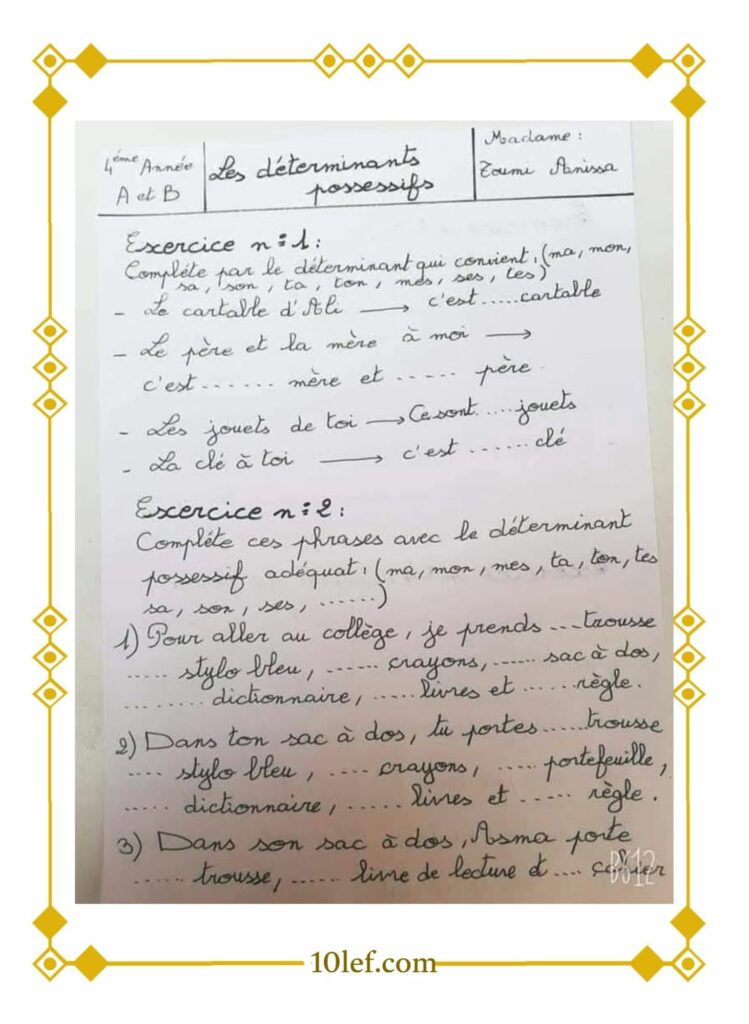 4ème Année
A et B
Les déterminants
possessifs
Madame :
Toumi Anissa
Exercice n:1:
Compléte par le déterminant qui convient: (ma, mon,
sa, son, ta, ton, mes, ses, tes)
- Le cartable d'Ali → c'est .....cartable
- Le père et la mère à moi →
c'est ...... mère et ..... père
- Les jouets de toi → Ce sont .....jouets
- La clé à toi → c'est ...... clé
Exercice n:2:
Compléte ces phrases avec le déterminant
possessif adéquat: (ma, mon, mes, ta, ton, tes
sa, son, ses, ......)
1) Pour aller au collège, je prends ...trousse
..... stylo bleu, ...... crayons, ...... sac à dos,
........ dictionnaire, ..... livres et ......règle.
2) Dans ton sac à dos, tu portes .....trousse
.... stylo bleu, .... crayons, ..... portefeuille,
..... dictionnaire, ..... livres et ..... règle.
3) Dans son sac à dos, Asma porte
...... trousse, ...... livre de lecture et .... cahier
B612
10lef.com